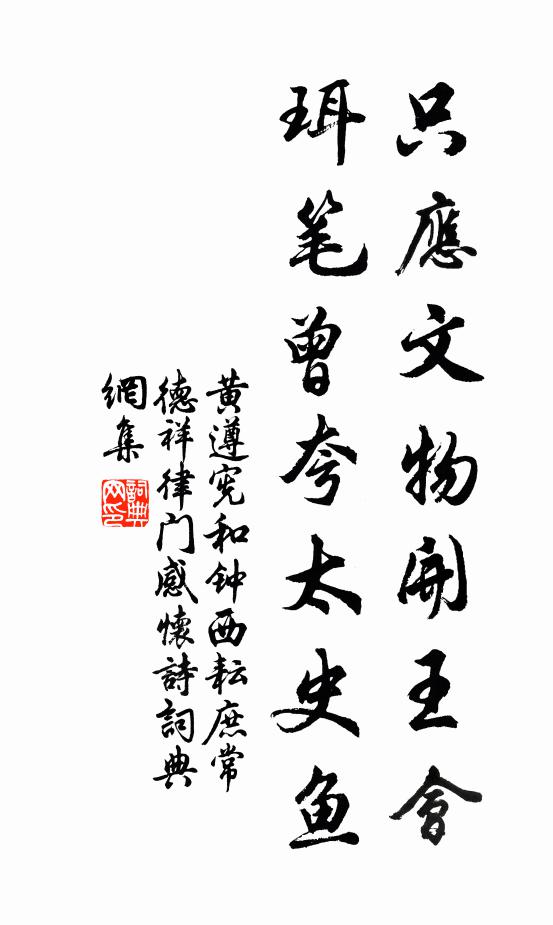 只應文物開王會
珥笔曾夸太史鱼
黄遵宪和钟西耘庶常
德祥律门感懷詩詞典
網集
詞典
网印